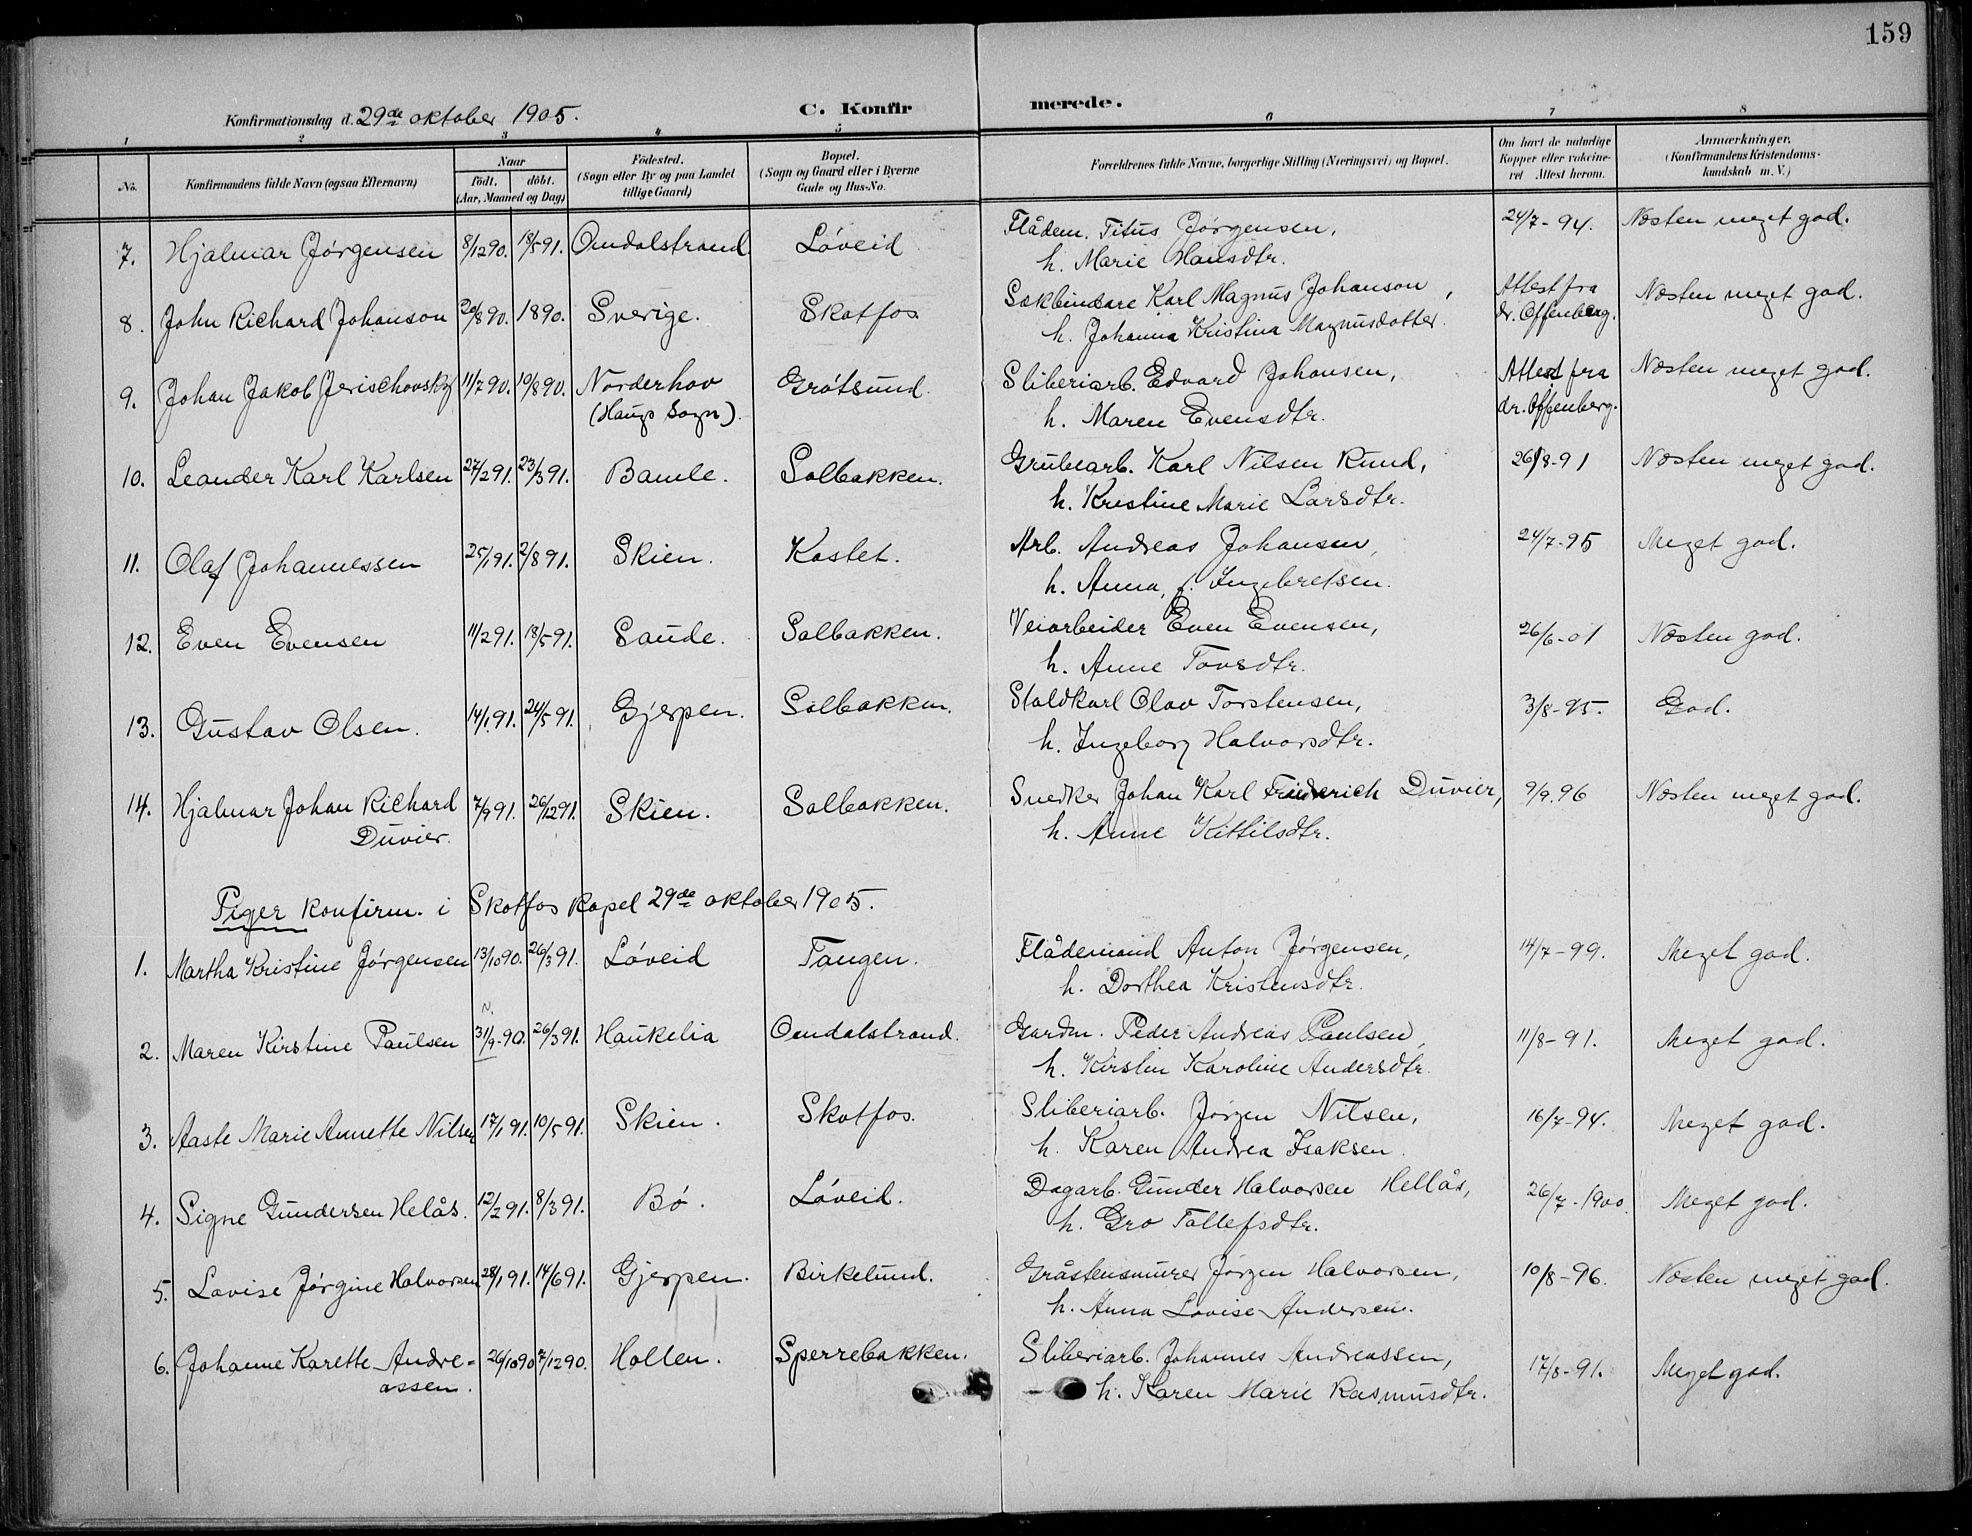 159
Konfirmationsdag d. 29de oktober 1905.
C. Konfirmerede.
1 2 3 4 5 6 7 8
No. Konfirmandens fulde Navn (ogsaa Efternavn) Naar født. døbt. (Aar, Maaned og Dag) Fødested. (Sogn eller By og paa Landet tillige Gaard) Bopæl. (Sogn og Gaard eller i Byerne Gade og Hus-No. Forældrenes fulde Navne, borgerlige Stilling (Næringsvei) og Bopæl. Om havt de naturlige Kopper eller vakcineret Attest herom. Anmærkninger. (Konfirmandens Kristendomskundskab m. V.)
7. Hjalmar Jørgensen 8/12 90. 18/5 91. Omdalstrand. Løveid Flådem. Titus Jørgensen, 24/7-94. Næsten meget god.
h. Marie Hansdtr.
8. John Richard Johanson 20/8 90. 1890. Sverige. Skotfos Sækbindare Karl Magnus Johanson, Attest fra Næsten meget god.
h. Johanna Kristina Magnusdotter. dr. Offenberg.
9. Johan Jakob Jerischovsky 11/7 90. 10/8 90. Norderhov Grøtsund. Sliberiarb. Edvard Johansen, Attest fra Næsten meget god.
(Haugs Sogn). h. Maren Evensdtr. dr. Offenberg.
10. Leander Karl Karlsen 27/2 91. 23/3 91. Bamle. Solbakken. Grubearb. Karl Nilsen Rund, 26/8-91 Næsten meget god.
h. Kristine Marie Larsdtr.
11. Olaf Johannessen 25/1 91. 2/8 91. Skien. Kastet. Arb. Andreas Johansen, 24/7-95 Meget god.
h. Anna, f. Ingebretsen.
12. Even Evensen 11/2 91. 18/5 91. Saude. Solbakken. Veiarbeider Even Evensen, 26/6-01 Næsten god.
h. Anne Tovsdtr.
13. Gustav Olsen. 14/1 91. 24/5 91. Gjerpen. Solbakken. Staldkarl Olav Torstensen, 3/8-95. God.
h. Ingeborg Halvorsdtr.
14. Hjalmar Johan Richard 7/9 91. 26/12 91. Skien. Solbakken. Snedker Johan Karl Friederich Duvier, 9/9.96 Næsten meget god.
Duvier. h. Anne Kittilsdtr.
Piger konfirm. i Skotfos kapel 29de oktober 1905.
1. Martha Kristine Jørgensen 13/10 90. 26/3 91. Løveid Tangen. Flådemand Anton Jørgensen, 14/7-99. Meget god.
h. Dorthea Kristensdtr.
2. Maren Kirstine Paulsen 31/9-90. 26/3 91. Haukelia Omdalstrand. Gardm. Peder Andreas Paulsen, 11/8-91. Meget god.
h. Kirstin Karoline Andersdtr.
3. Aaste Marie Annette Nilsen 17/1 91. 10/5 91. Skien. Skotfos. Sliberiarb. Jørgen Nilsen, 16/7-94. Meget god.
h. Karen Andrea Isaksen.
4. Signe Gundersen Helås. 12/2 91. 8/3 91. Bø. Løveid. Dagarb. Gunder Halvorsen Hellås, 26/7-1900. Meget god.
h. Gro Tollefsdtr.
5. Lovise Jørgine Halvorsen 28/1 91. 14/6 91. Gjerpen. Birkelund. Gråstensmurer Jørgen Halvorsen, 10/8-96. Næsten meget god.
h. Anna Lovise Andersen.
6. Johanne Karette Andre- 26/10 90 7/12 90. Hollen. Sperrebakken. Sliberiarb. Johannes Andreassen, 17/8-91. Meget god.
assen. h. Karen Marie Rasmusdtr.